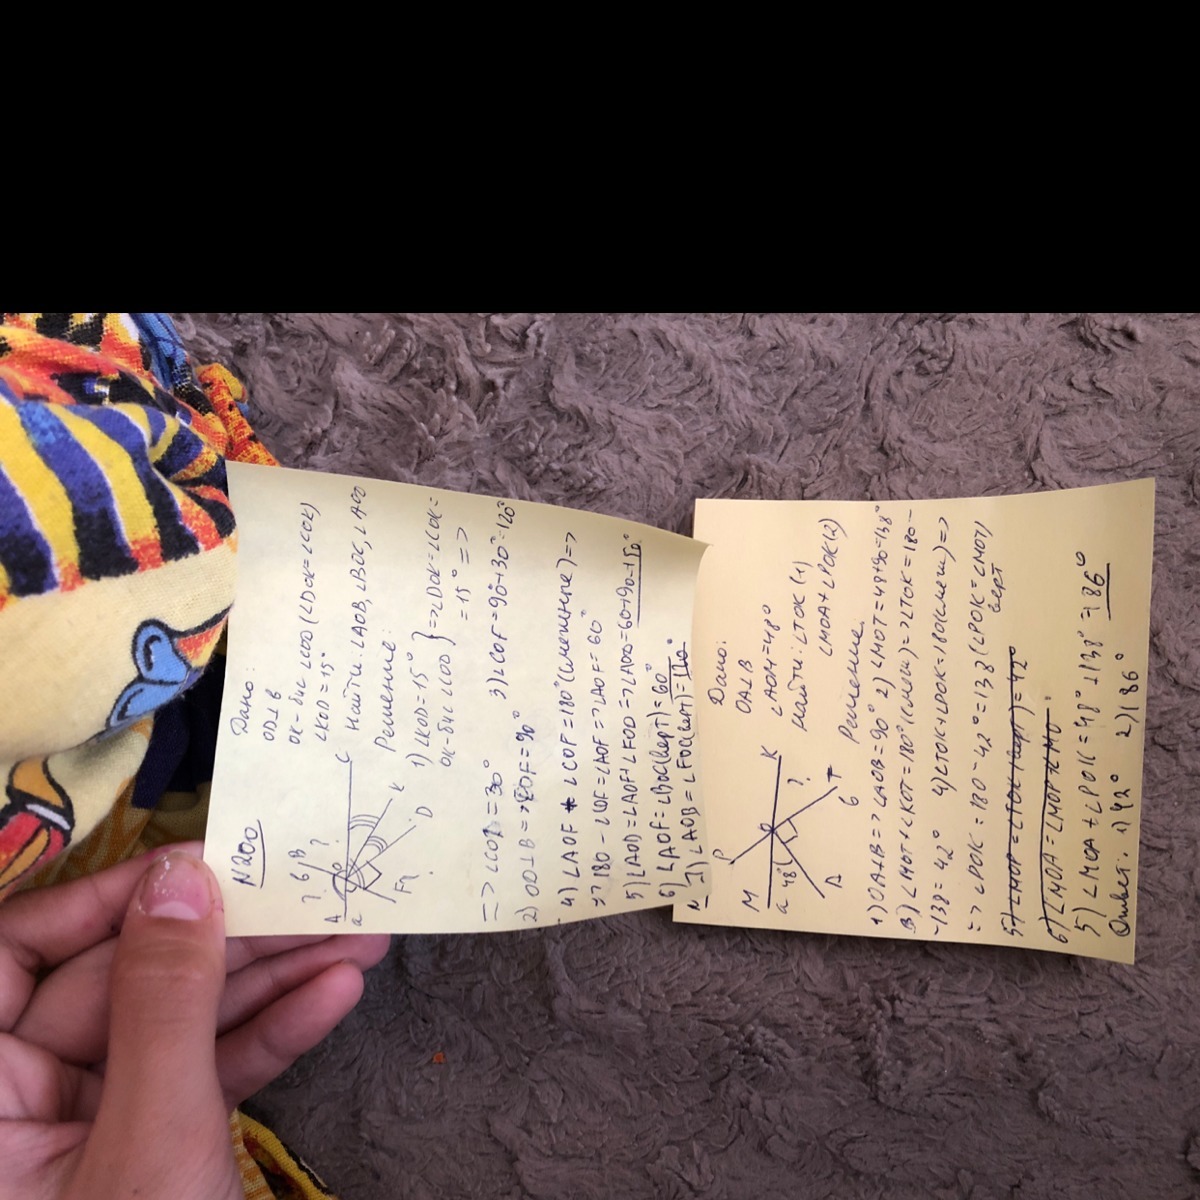 N200
Дано:
OD⊥B
OK – бис ∠COD (∠DOK=∠COK)
∠KOD = 15°
Найти: ∠AOB, ∠BOC, ∠AOD
Решение:
1) ∠KOD = 15°
OK – бис ∠COD } => ∠DOK = ∠COK =
= 15° =>
A
a
?
б
B
?
C
O
K
D
F
=> ∠COD = 30°
2) OD⊥B => ∠DOF = 90°
3) ∠COF = 90°+30° = 120°
4) ∠AOF + ∠COF = 180° (смежные) =>
=> 180 – ∠COF = ∠AOF => ∠AOF = 60°
5) ∠AOD = ∠AOF + ∠FOD => ∠AOD = 60+90 = 150°
6) ∠AOF = ∠BOC (верт) = 60°
7) ∠AOB = ∠FOC (верт) = 120°
Дано:
OA⊥B
∠AOM = 48°
Найти: ∠TOK (1)
∠MOA + ∠POK (2)
M
a
P
O
K
48°
?
A
б
T
Решение.
1) OA⊥B => ∠AOB = 90° 2) ∠MOT = 48+90 = 138°
3) ∠MOT + ∠KOT = 180° (смеж.) => ∠TOK = 180 –
– 138 = 42° 4) ∠TOK + ∠POK = 180 (смеж) =>
=> ∠POK = 180 – 42° = 138 (∠POK = ∠MOT)
верт
5) ∠MOP = ∠TOK (верт) = 42°
6) ∠MOA = ∠MOP
5) ∠MOA + ∠POK = 48° + 138° = 186°
Ответ: 1) 42° 2) 186°